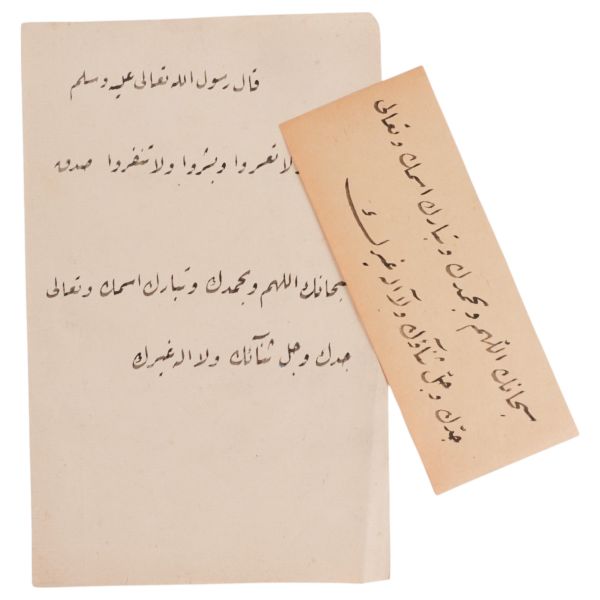 قال رسول الله تعالى عليه وسلم
ولا تعسروا وبشروا ولا تنفروا صدق
سبحانك اللهم وبحمدك وتبارك اسمك وتعالى
جدك وجل ثنآئك ولا اله غيرك
سبحانك اللهم وبحمدك وتبارك اسمك وتعالى
جدّك وجلّ ثنآؤك ولآ اله غيرك